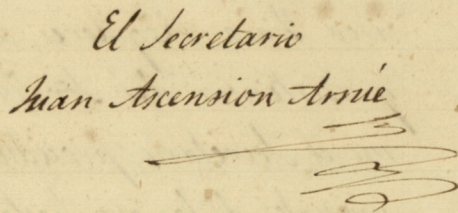 El Secretario
Juan Ascension Arnié